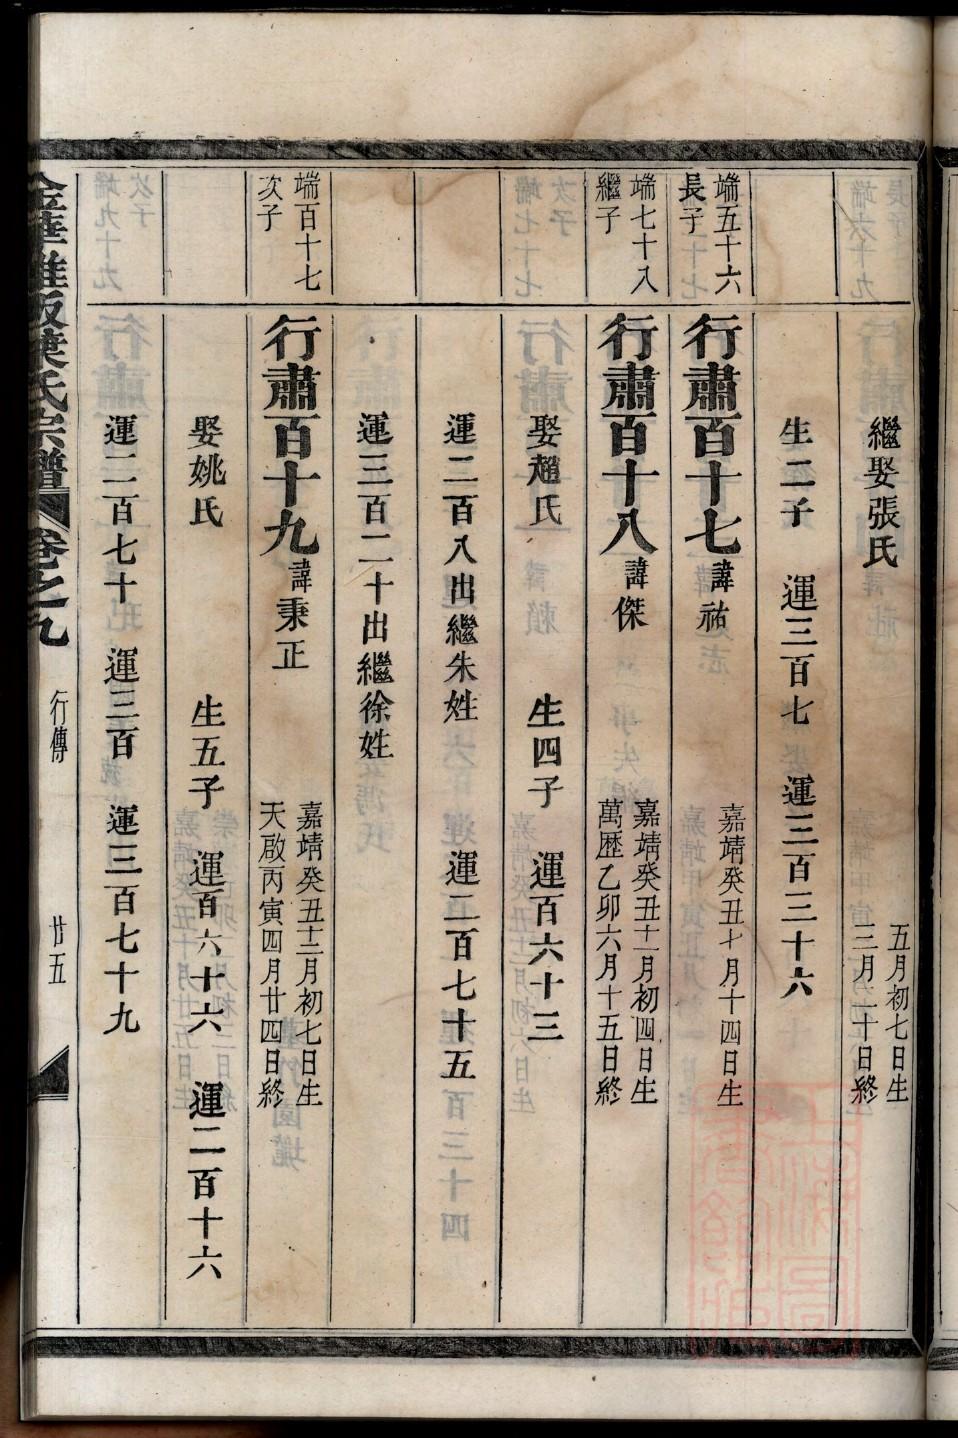 繼娶張氏
五月初七日生
三月二十日終
生二子　運三百七　運三百三十六
端五十六
長子
行肅百十七 諱祐
嘉靖癸丑十月十四日生
端七十八
繼子
行肅百十八 諱傑
嘉靖癸丑十二月初四日生
萬歷乙卯六月十五日終
娶趙氏　生四子　運百六十三
運二百八出繼朱姓　運二百七十五
運三百二十出繼徐姓
端百十七
次子
行肅百十九 諱秉正
嘉靖癸丑十二月初七日生
天啟丙寅四月廿四日終
娶姚氏　生五子　運百六十六　運二百十六
運二百七十　運三百　運三百七十九
氏宗譜　卷之九　行傳　廿五